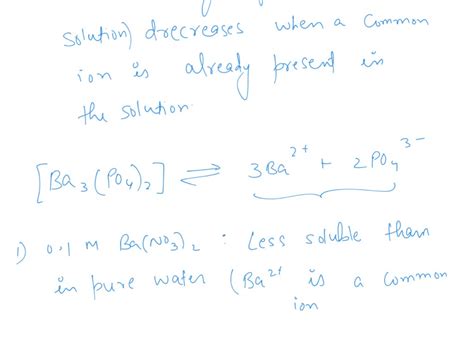 solution) drecreases when a common
ion is already present in
the solution.
[Ba₃(PO₄)₂] ⇌ 3Ba²⁺ + 2PO₄³⁻
1) 0.1 M Ba(NO₃)₂ : Less soluble than
in pure water (Ba²⁺ is a common
ion